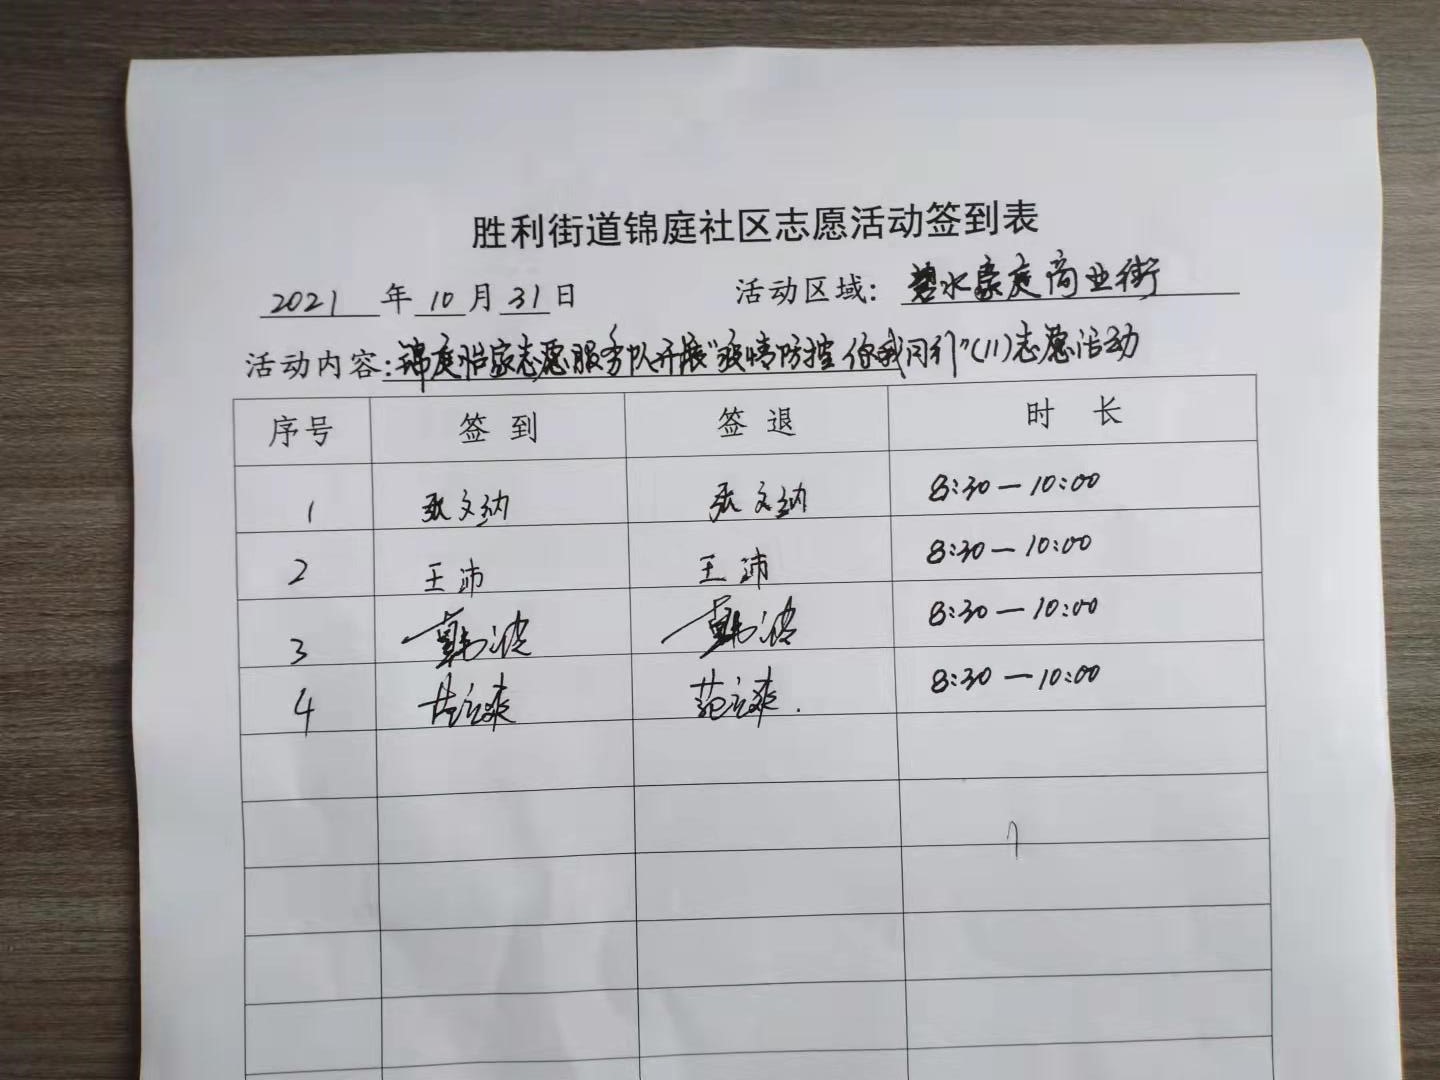 胜利街道锦庭社区志愿活动签到表
2021 年 10 月 31 日 活动区域: 碧水豪庭商业街
活动内容: 锦庭怡家志愿服务队开展"疫情防控 你我同行"(11)志愿活动
序号 签到 签退 时 长
1 张文纳 张文纳 8:30—10:00
2 王沛 王沛 8:30—10:00
3 韩波 韩波 8:30—10:00
4 范立爽 范立爽. 8:30—10:00